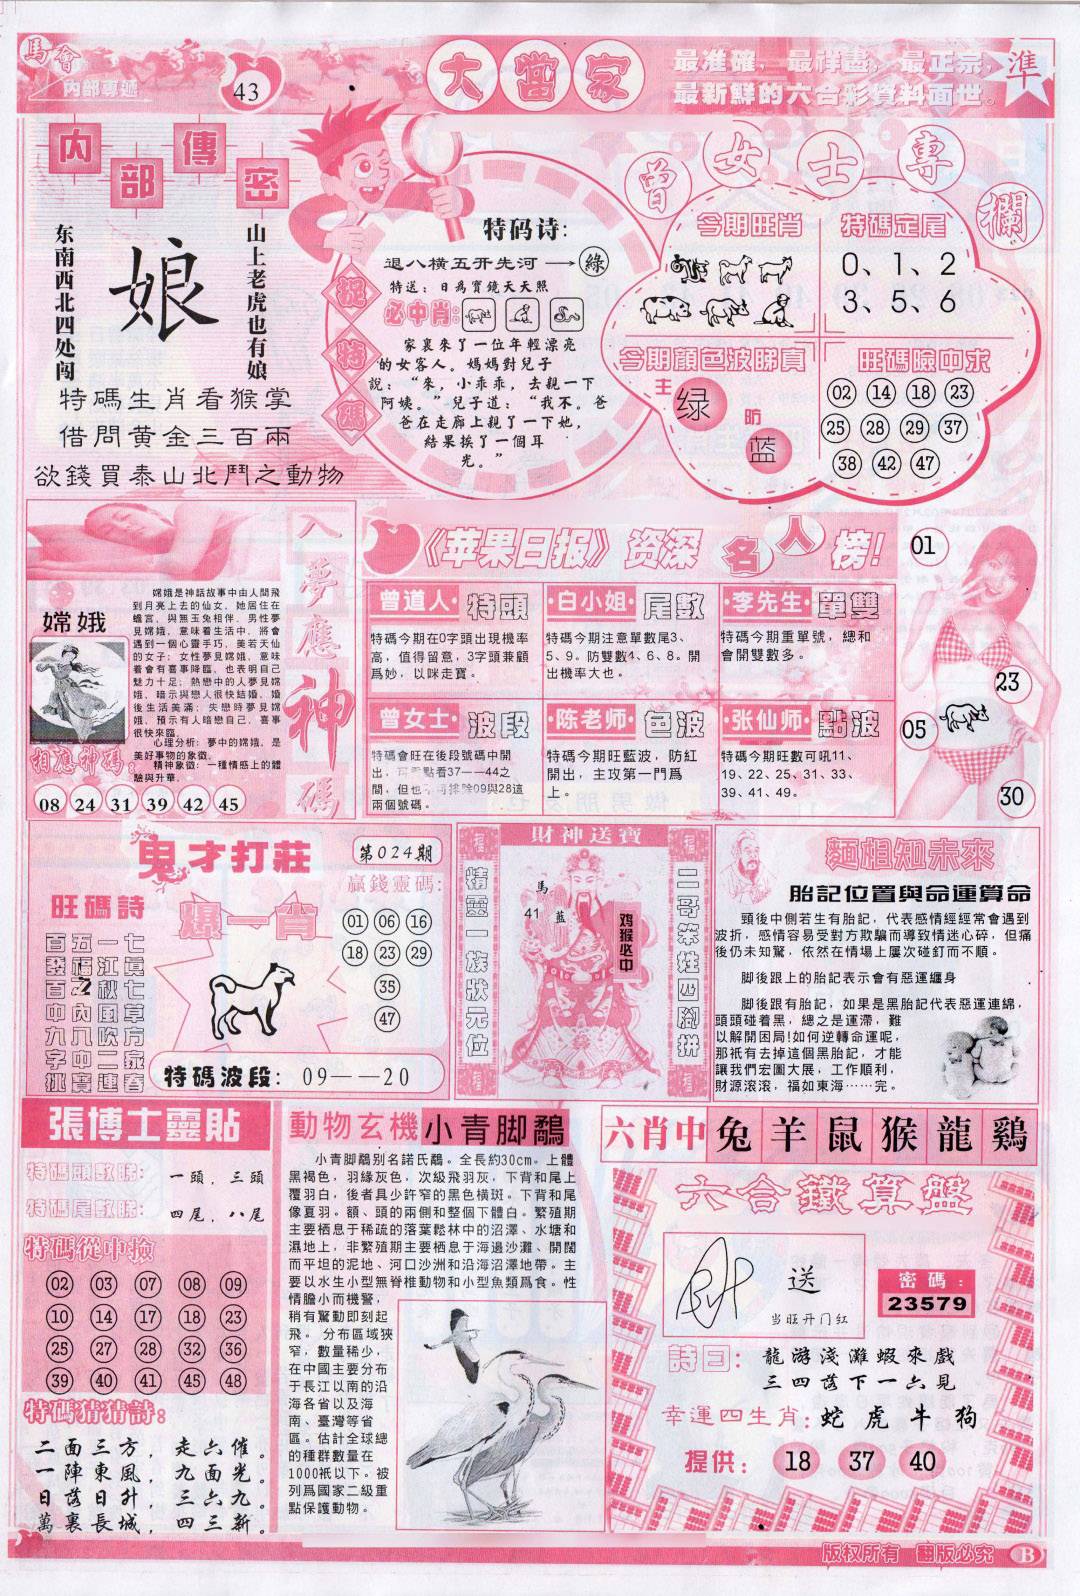 馬會
内部專遞
43
大當家
最准確，最祥盡，最正宗，
最新鮮的六合彩資料面世。
準
内部傳密
山上老虎也有娘
娘
东南西北四处闯
特碼生肖看猴掌
借問黄金三百兩
欲錢買泰山北鬥之動物
捉特碼
特码诗:
退八横五开先河→綠
特送：日爲寳鏡天天照
必中肖:
家裏來了一位年輕漂亮
的女客人。媽媽對兒子
說：“來，小乖乖，去親一下
阿姨。”兒子道：“我不。爸
爸在走廊上親了一下她，
結果挨了一個耳
光。”
曾女士專欄
今期旺肖
特碼定尾
0、1、2
3、5、6
今期顔色波睇真
主 绿
防 蓝
旺碼險中求
02 14 18 23
25 28 29 37
38 42 47
入夢應神碼
嫦娥
嫦娥是神話故事中由人間飛
到月亮上去的仙女。她居住在
蟾宮，與無玉兔相伴。男性夢
見嫦娥，意味着生活中，將會
遇到一個心靈手巧，美若天仙
的女子；女性夢見嫦娥，意味
着會有喜事降臨，也表明自己
魅力十足；熱戀中的人夢見嫦
娥，暗示與戀人很快結婚，婚
後生活美滿；失戀時夢見嫦
娥，預示有人暗戀自己，喜事
很快來臨。
心理分析：夢中的嫦娥，是
美好事物的象徵。
精神象徵：一種情感上的體
驗與升華。
相應神碼:
08 24 31 39 42 45
《苹果日报》资深名人榜!
·曾道人· 特頭
特碼今期在0字頭出現機率
高，值得留意，3字頭兼顧
爲妙，以咪走寶。
·白小姐· 尾數
特碼今期注意單數尾3、
5、9。防雙數4、6、8。開
出機率大也。
·李先生· 單雙
特碼今期重單號，總和
會開雙數多。
·曾女士· 波段
特碼會旺在後段號碼中開
出，可重點看37——44之
間，但也不可排除09與28這
兩個號碼。
·陈老师· 色波
特碼今期旺藍波，防紅
開出，主攻第一門爲
上。
·张仙师· 點波
特碼今期旺數可吼11、
19、22、25、31、33、
39、41、49。
01
23
05
30
鬼才打莊
第024期
旺碼詩
七真七草方家春
一江秋風吹二連
五福之內八中寶
百發百中九字挑
爆一肖
贏錢靈碼:
01 06 16
18 23 29
35
47
特碼波段: 09——20
財神送寶
精靈一族狀元位
二哥笨姓四腳拼
馬
41 蓝
鸡猴必中
麵相知未來
胎記位置與命運算命
頭後中側若生有胎記，代表感情經經常會遇到
波折，感情容易受對方欺騙而導致情迷心碎，但痛
後仍未知驚，依然在情場上屢次碰釘而不順。
脚後跟上的胎記表示會有惡運纏身
脚後跟有胎記，如果是黑胎記代表惡運連綿，
頭頭碰着黑，總之是運滯，難
以解開困局!如何逆轉命運呢，
那祇有去掉這個黑胎記，才能
讓我們宏圖大展，工作順利，
財源滾滾，福如東海……完。
張博士靈貼
特碼頭數睇: 一頭，三頭
特碼尾數睇: 四尾，八尾
特碼從中撿
02 03 07 08 09
10 14 17 18 23
25 27 28 32 36
39 40 41 45 48
特碼猜猜詩:
二面三方，走六催。
一陣東風，九面光。
日落日升，三六九。
萬裏長城，四三新。
動物玄機 小青脚鷸
小青脚鷸别名諾氏鷸。全長約30cm。上體
黑褐色，羽緣灰色，次級飛羽灰，下背和尾上
覆羽白，後者具少許窄的黑色横斑。下背和尾
像夏羽。額、頭的兩側和整個下體白。繁殖期
主要栖息于稀疏的落葉鬆林中的沼澤、水塘和
濕地上，非繁殖期主要栖息于海邊沙灘、開闊
而平坦的泥地、河口沙洲和沿海沼澤地帶。主
要以水生小型無脊椎動物和小型魚類爲食。性
情膽小而機警，
稍有驚動即刻起
飛。分布區域狹
窄，數量稀少，
在中國主要分布
于長江以南的沿
海各省以及海
南、臺灣等省
區。估計全球總
的種群數量在
1000衹以下。被
列爲國家二級重
點保護動物。
六肖中 兔 羊 鼠 猴 龍 鷄
六合鐵算盤
送
当旺开门红
密碼：
23579
詩曰: 龍游淺灘蝦來戲
三四落下一六見
幸運四生肖: 蛇 虎 牛 狗
提供: 18 37 40
版权所有 翻版必究 B